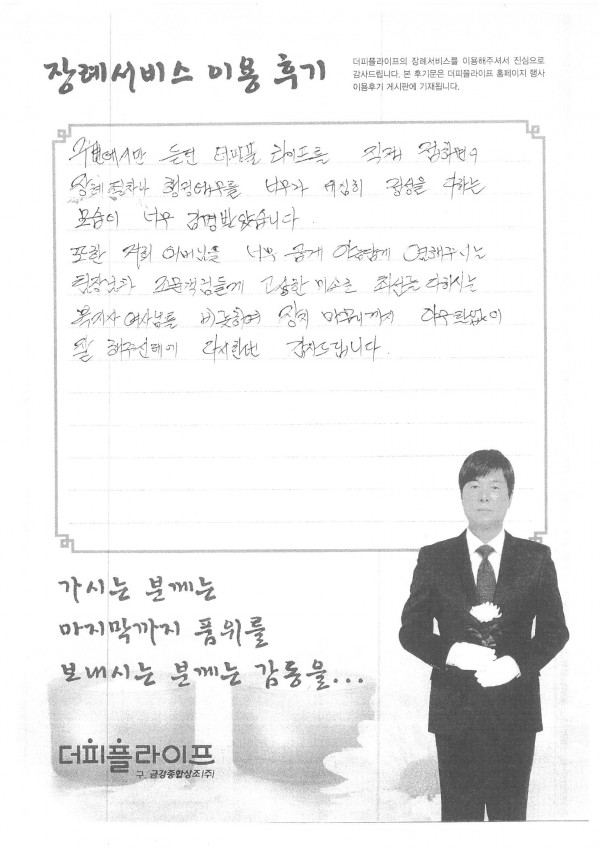 장례서비스 이용 후기
더피플라이프의 장례서비스를 이용해주셔서 진심으로
감사드립니다. 본 후기문은 더피플라이프 홈페이지 행사
이용후기 게시판에 기재됩니다.
주변에서만 듣던 더피플 라이프를 직접 접하면서
장례 절차나 너무나 세심히 정성을 다하는
모습이 너무 감명받았습니다.
또한 저희 어머님을 너무 곱게 아름답게 염해주시는
팀장님과 조문객님들께 고상한 미소로 최선을 다하시는
복지사 여사님들 비롯하여 장례 마무리까지 아무탈없이
잘 해주신데에 다시한번 감사드립니다.
가시는 분께는
마지막까지 품위를
보내시는 분께는 감동을...
더피플라이프
구. 금강종합상조(주)